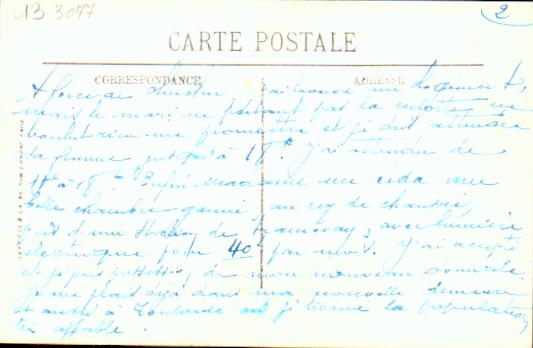 13 3077
2
CARTE POSTALE
CORRESPONDANCE ADRESSE
A force de chercher, j'ai trouvé un logement,
mais le mari ne portant pas la culotte ne
voulut rien me promettre et je dus attendre
sa femme jusqu'à 18h. J'ai attendu de
à 18h. Enfin madame me céda une
belle chambre garnie, au rez de chaussée,
près d'une station de tramway, avec lumière
électrique pour 40 par mois. J'ai accepté
et je pris possession, de mon nouveau domicile.
Je me plais déjà dans ma nouvelle demeure
et aussi à Toulouse où je trouve la population
très affable.